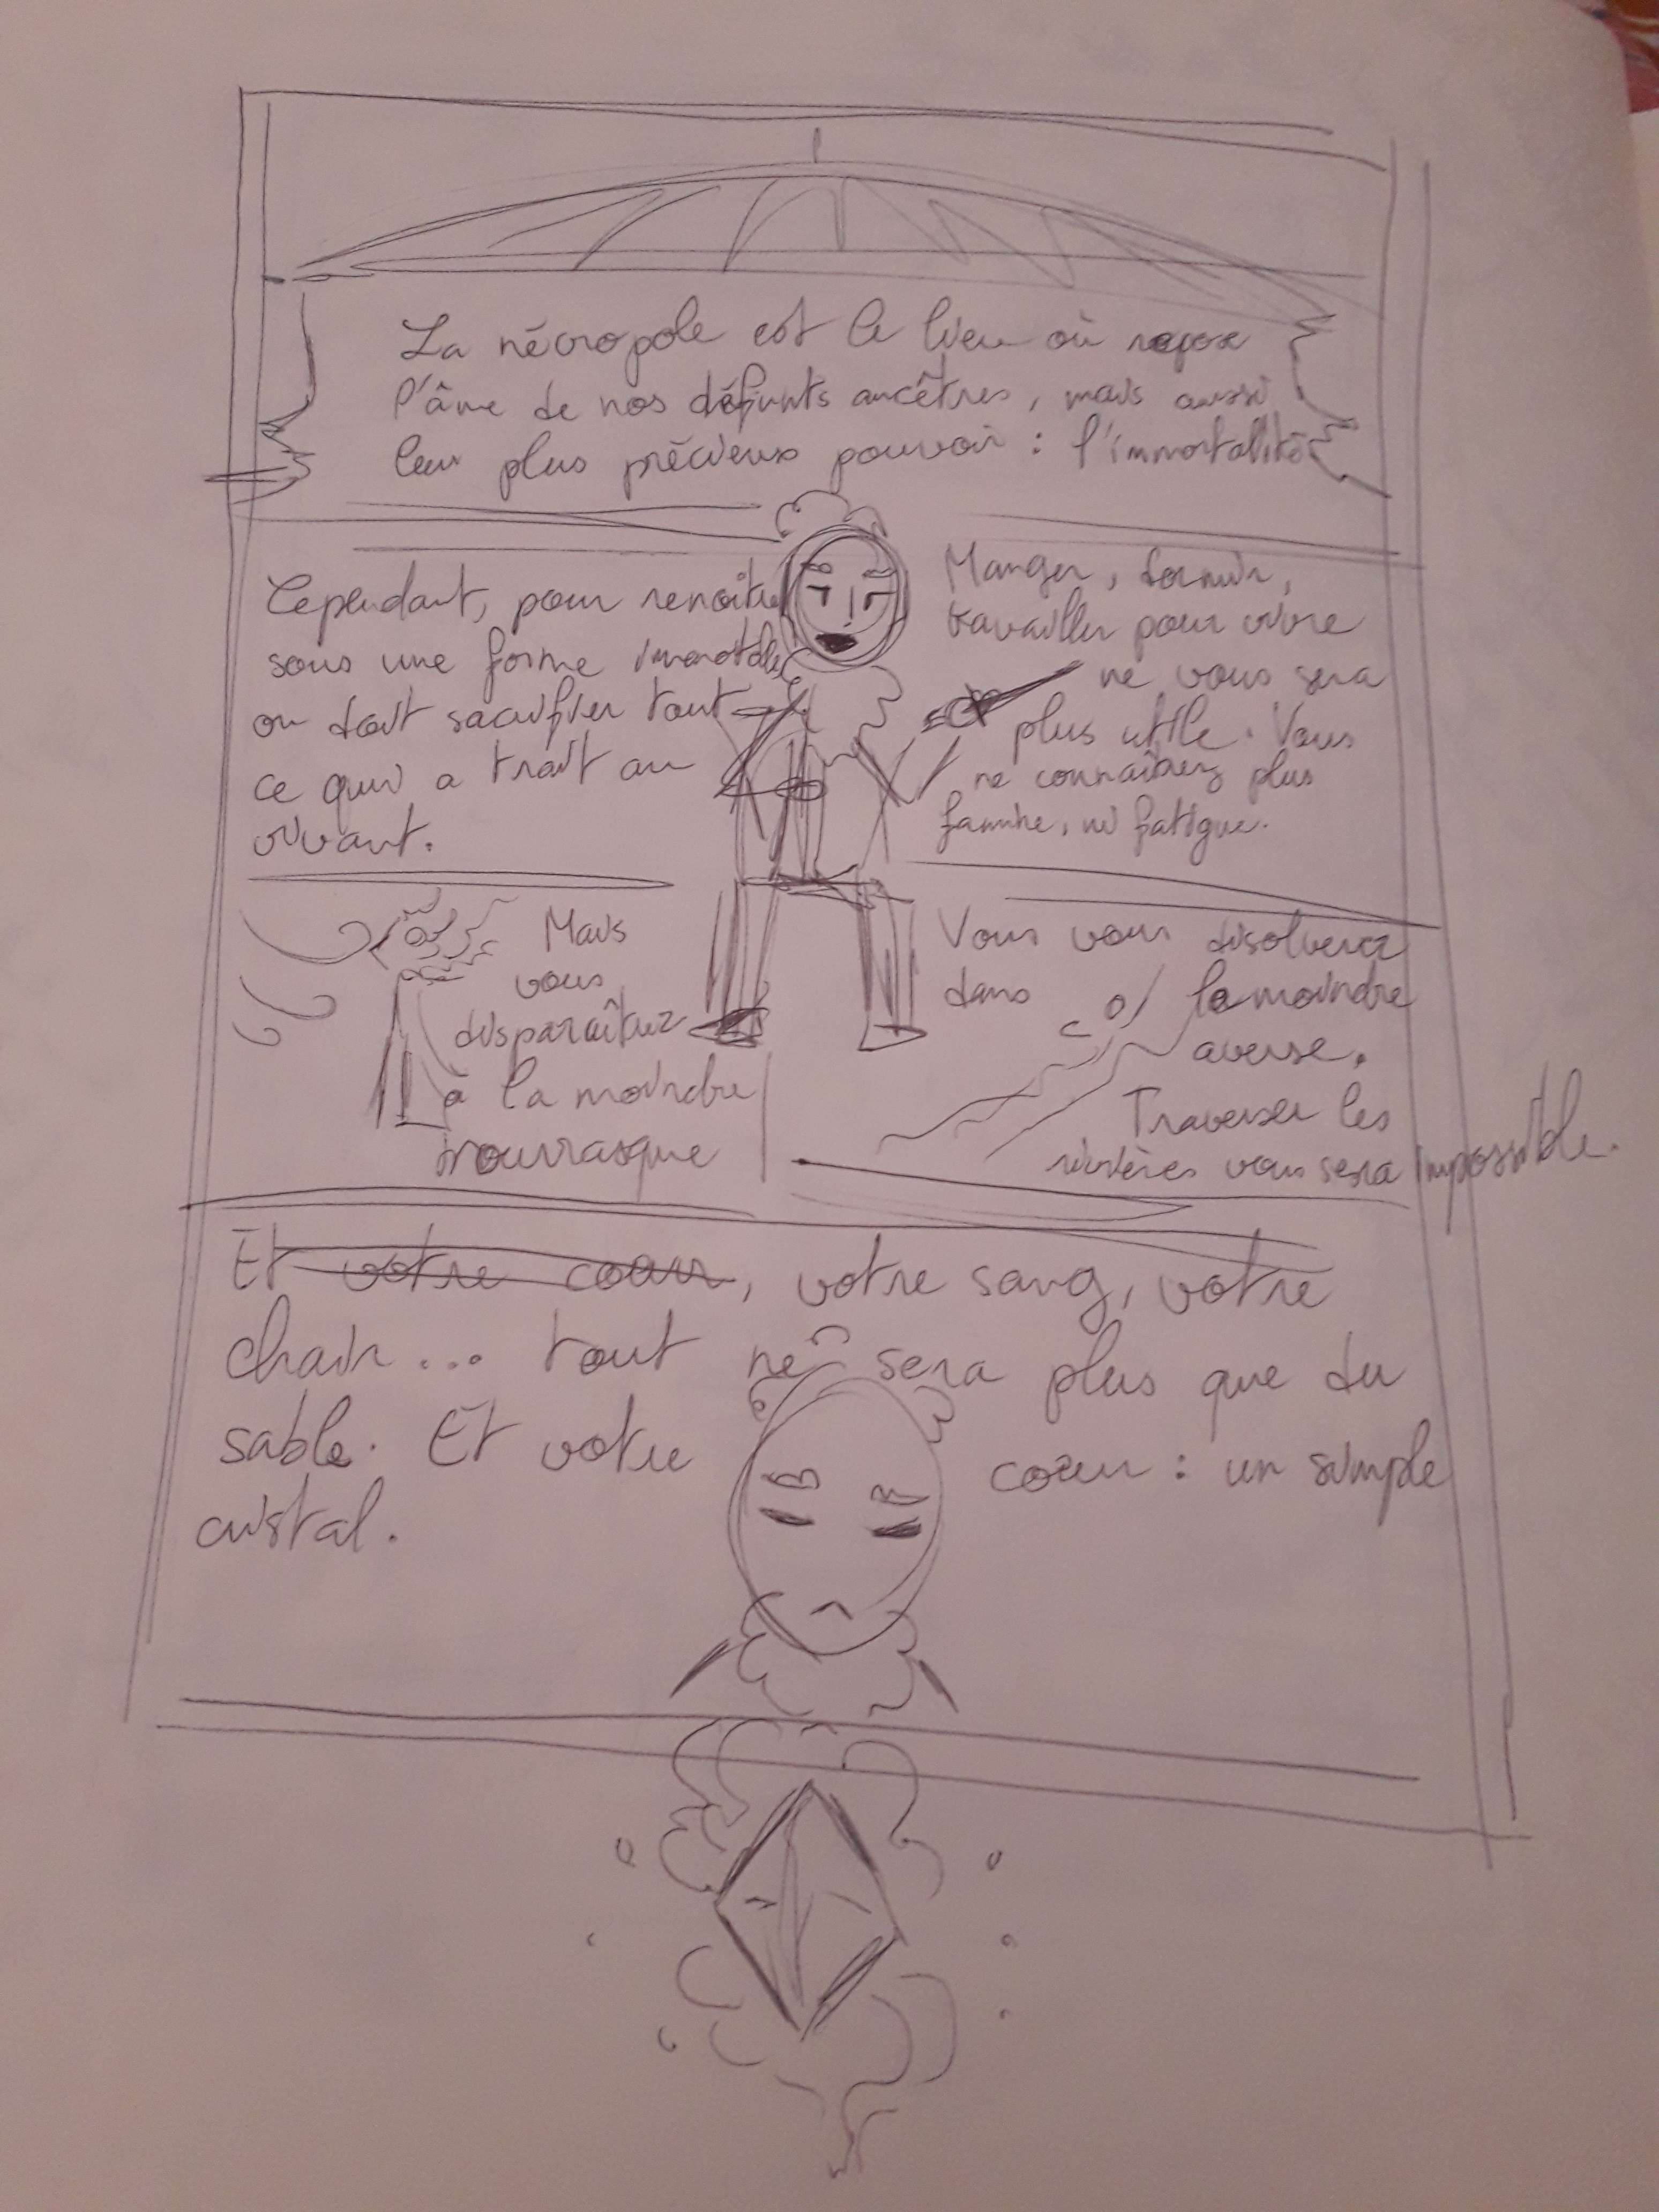 La nécropole est le lieu où repose
l'âme de nos défunts ancêtres, mais aussi
leur plus précieux pouvoir : l'immortalité
Cependant, pour renaître
sous une forme immortelle
on doit sacrifier tout
ce qui a trait au
vivant.
Manger, dormir,
travailler pour vivre
ne vous sera
plus utile. Vous
ne connaîtrez plus
famine, ni fatigue.
Mais
vous
disparaîtrez
à la moindre
bourrasque
Vous vous disolverez
dans la moindre
averse.
Traverser les
rivières vous sera impossible.
Et votre cœur, votre sang, votre
chair... tout ne sera plus que du
sable. Et votre cœur : un simple
cristal.